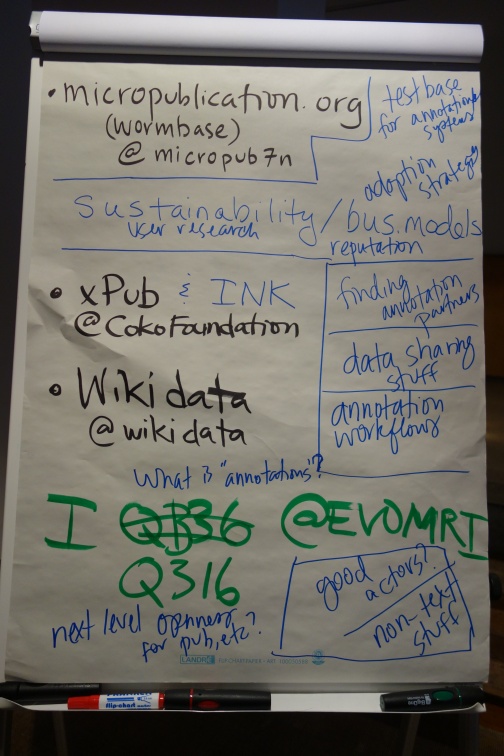 • micropublication.org
(wormbase)
@micropub7n
test base
for annotation
systems
adoption
strategy
Sustainability/bus.models
user research
reputation
• xPub & INK
@CokoFoundation
finding
annotation
partners
data sharing
stuff
annotation
workflows
• Wikidata
@wikidata
What is "annotations"?
I Q336 @EVOMRI
Q316
good
actors?
non-text
stuff
next level openness
for pub, etc?
LANDRÉ
flip-chart marker